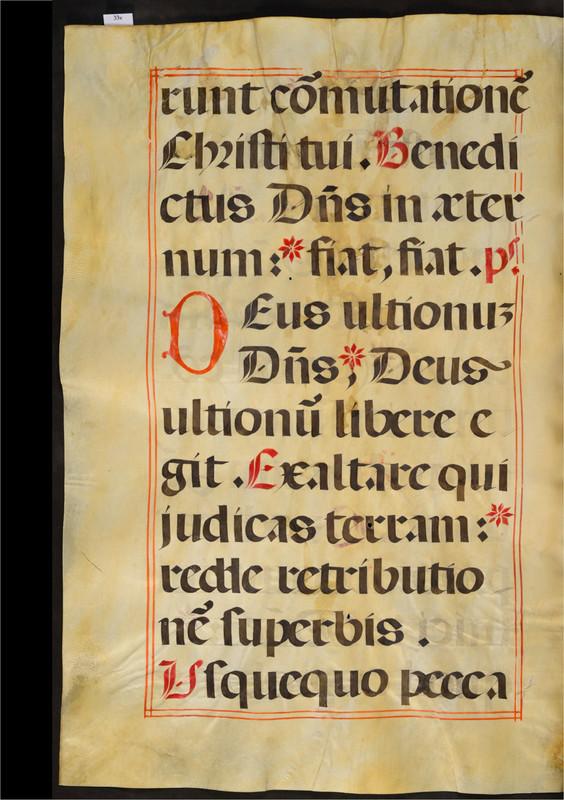 33v
runt cõmutationẽ
Christi tui. Benedi
ctus Dñs in æter
num:* fiat, fiat. ps.
DEus ultionuꝫ
Dñs;* Deus
ultionũ libere e
git. Exaltare qui
judicas terram:*
redde retributio
nẽ ſuperbis.
Uſquequo pecca